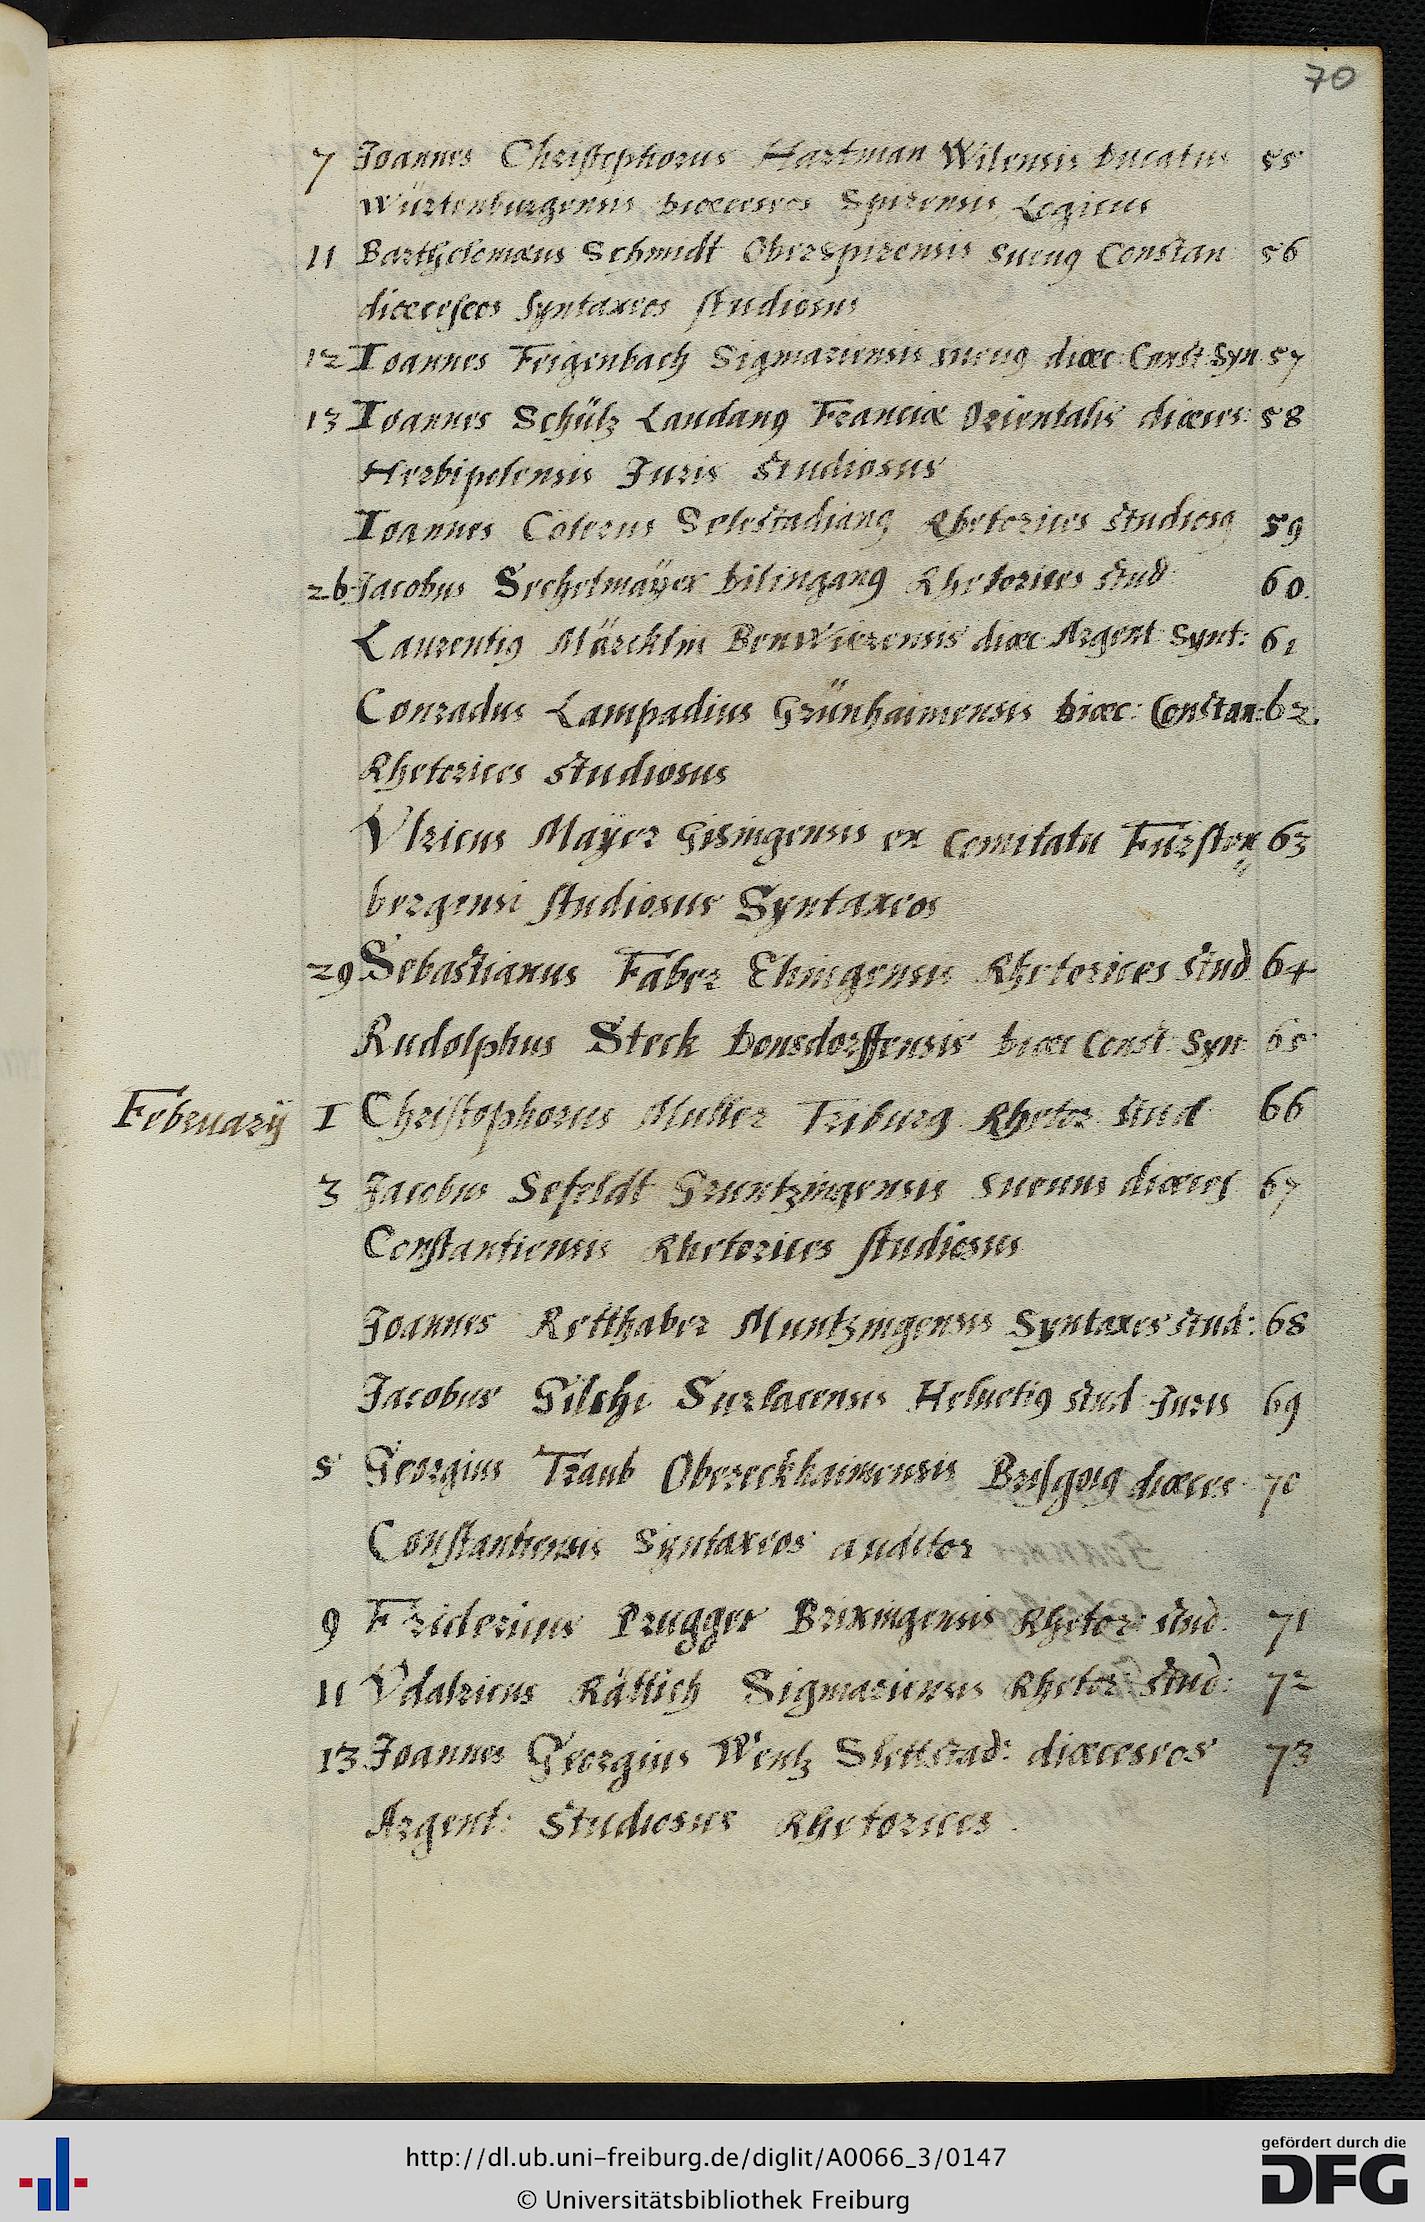 70
7 Joannes Christophorus Hartman Wilensis Ducatus 55
Würtenburgensis Dioeceseos Spirensis Logicus
11 Bartholomæus Schmidt Oberspirensis Sueuꝰ Constan 56
dioeceseos Syntaxeos studiosus
12 Ioannes Feigenbach Sigmariensis sueuꝰ dioec: Const: Syn 57
13 Ioannes Schülz Laudanꝰ Franciæ Orientalis dioeces: 58
Herbipolensis Juris Studiosus
Ioannes Colerus Selestadianꝰ Rhetorices Studiosꝰ 59
26 Jacobus Sechelmaÿer Dilinganꝰ Rhetorices Stud 60.
Laurentiꝰ Märcklin Benwierensis dioec: Argent: Synt: 61
Conradus Lampadius Grünhaimensis Dioec: Constan: 62.
Rhetorices Studiosus
Vlricus Maÿer Gisingensis ex Comitatu Fürsten 63
bergensi studiosus Syntaxeos
29 Sebastianus Faber Ehingensis Rhetorices Stud 64
Rudolphus Steck Donsdorffensis Dioec Const: Syn 65
Februarÿ 1 Christophorus Muller Triburg Rhetor Stud 66
3 Jacobus Sefeldt Gruntzingensis Sueuus dioeces 67
Constantiensis Rhetorices studiosus
Joannes Retthaber Muntzingensis Syntaxes stud: 68
Jacobus Gilchi Surlacensis Heluetiꝰ stud Juris 69
5 Georgius Traub Obereckhaimensis Brisgoiꝰ dioeces 70
Constantiensis Syntaxeos auditor
9 Fridericus Prugger Brixingensis Rhetor: stud. 71
11 Vdalricus Rättich Sigmariensis Rhetor: Stud: 72
13 Joannes Georgius Wentz Slettstad: dioeceseos 73
Argent: Studiosus Rhetorices.
http://dl.ub.uni-freiburg.de/diglit/A0066_3/0147
© Universitätsbibliothek Freiburg
gefördert durch die
DFG